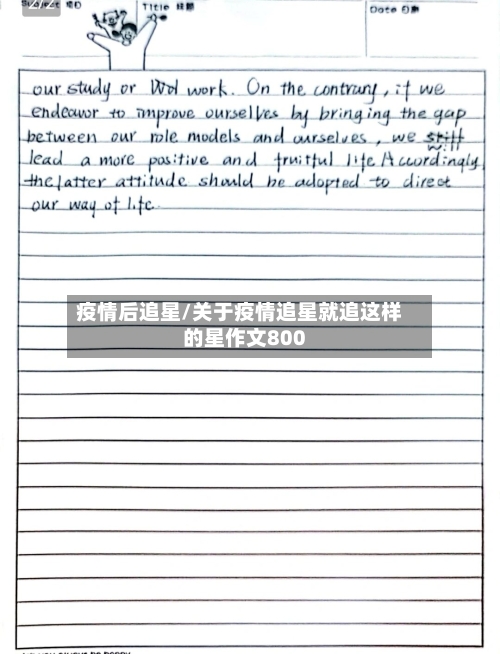 2/2
Title 标题
Date 日期
our study or Wol work. On the contrary, if we
endeavor to improve ourselves by bringing the gap
between our role models and ourselves, we still
will
lead a more positive and fruitful life Accordingly,
the latter attitude should be adopted to direct
our way of life.
疫情后追星/关于疫情追星就追这样
的星作文800